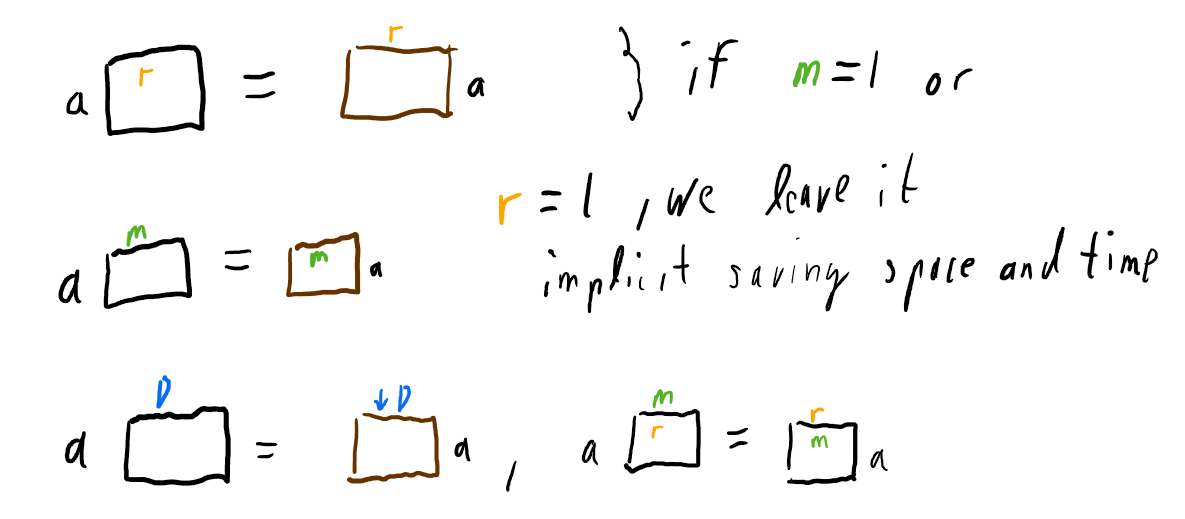 a r = r a } if m = 1 or
r = 1 , we leave it
a m = m a implicit saving space and time
a D = ↓ D a , a m r = r m a